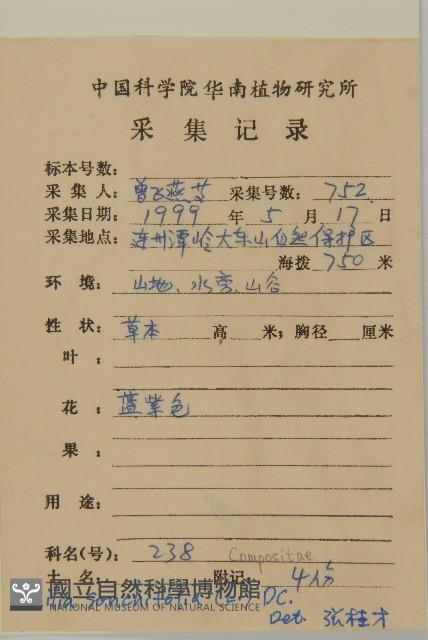 中国科学院华南植物研究所
采集记录
标本号数:
采集人: 曾飞燕等 采集号数: 752.
采集日期: 1999 年 5 月 17 日
采集地点: 连州潭岭大东山自然保护区
海拨 750 米
环境: 山地、水旁、山谷
性状: 草本 高 米; 胸径 厘米
叶:
花: 蓝紫色
果:
用途:
科名(号): 238 Compositae
土名: 附记: 4份
(L.) DC.
Det. 张桂才
國立自然科學博物館
NATIONAL MUSEUM OF NATURAL SCIENCE